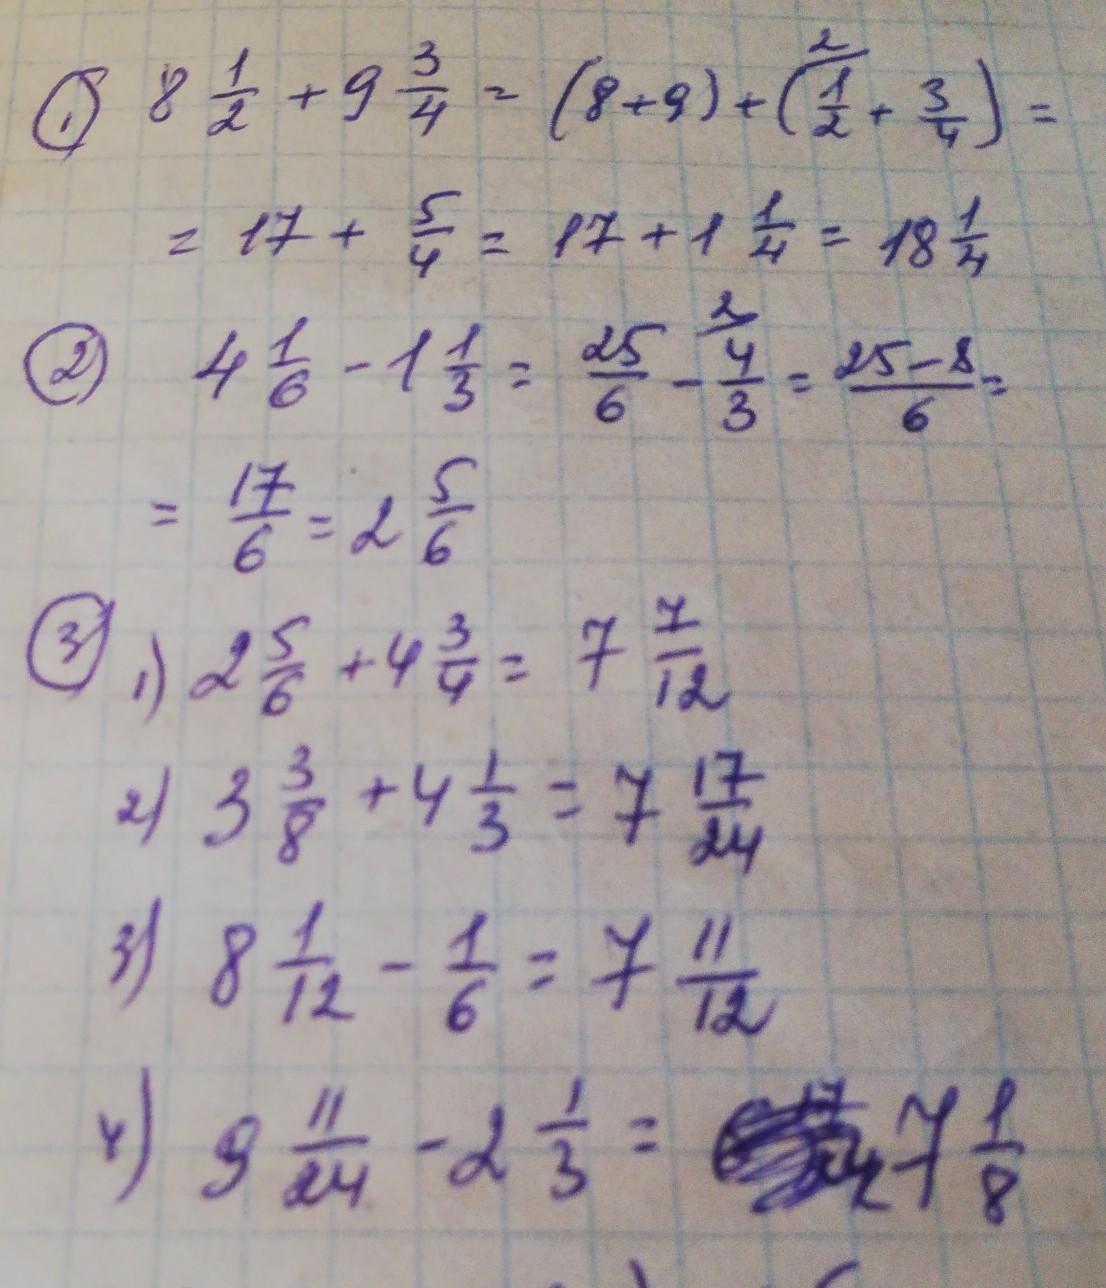 ① 8 1/2 + 9 3/4 = (8+9) + (1/2 ² + 3/4) =
= 17 + 5/4 = 17 + 1 1/4 = 18 1/4
② 4 1/6 - 1 1/3 = 25/6 - 4/3 ² = (25-8)/6 =
= 17/6 = 2 5/6
③ 1) 2 5/6 + 4 3/4 = 7 7/12
2) 3 3/8 + 4 1/3 = 7 17/24
3) 8 1/12 - 1/6 = 7 11/12
4) 9 11/24 - 2 1/3 = 7 1/8